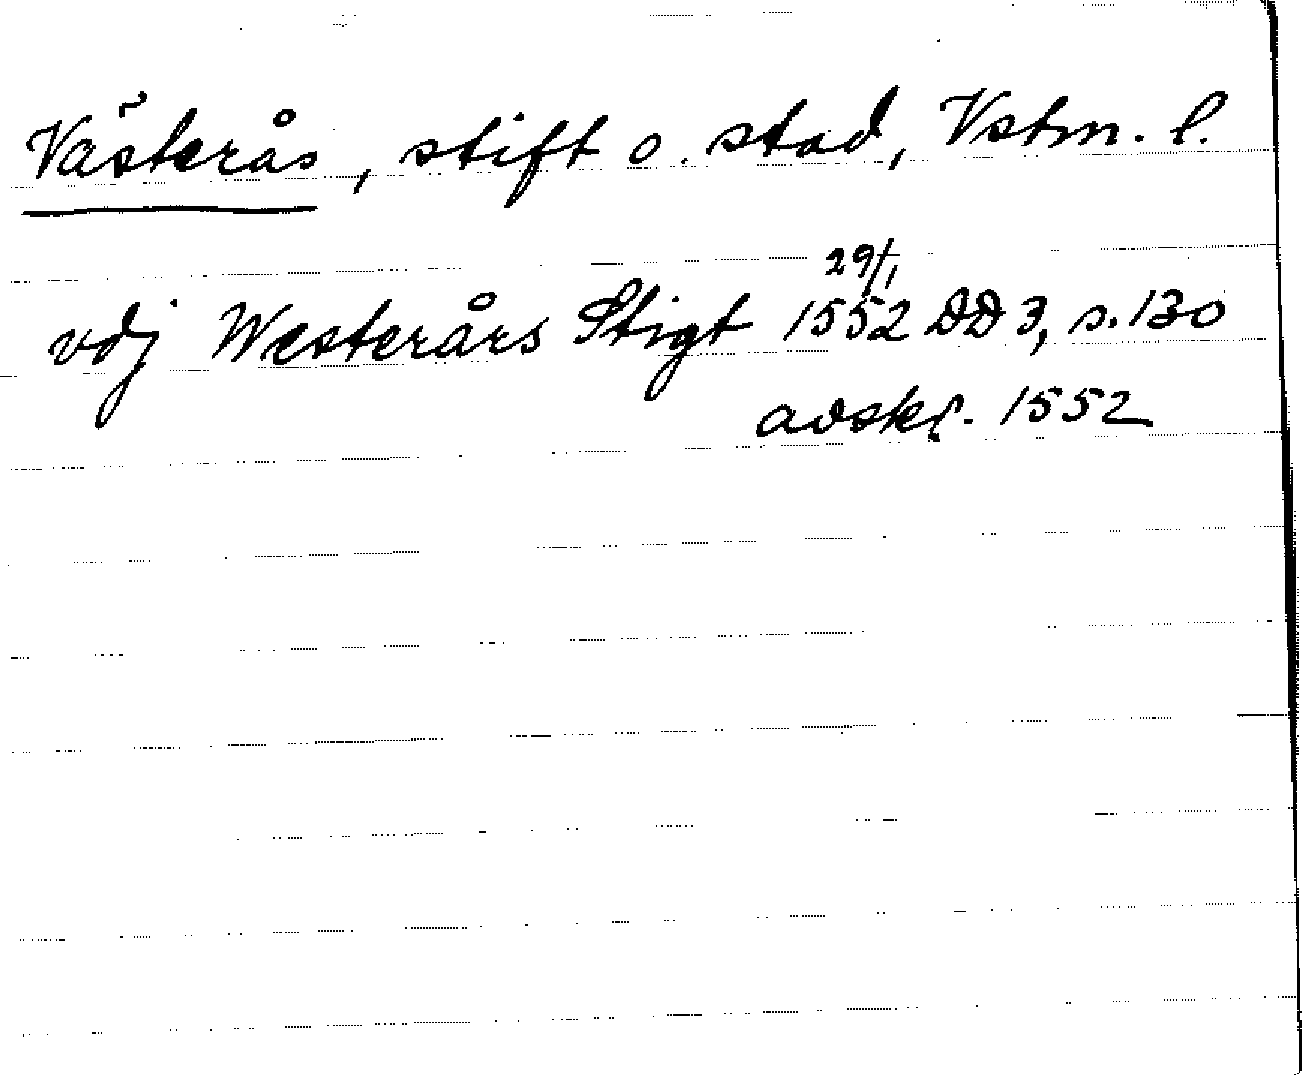 Västerås, stift o. stad, Vstm. l.
vdj Westerårs Stigt 29/1 1552 DD 3, s. 130
avskr. 1552